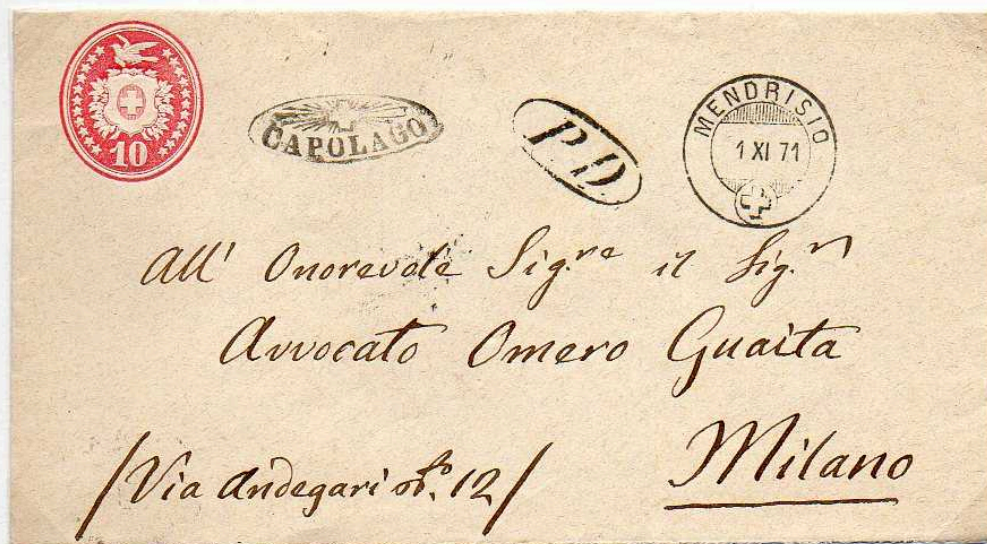 10
CAPOLAGO
P.D.
MENDRISIO
1 XI 71
All' Onorevole Sig.re il Sig.r
Avvocato Omero Guaita
Milano
/Via Andegari No. 12/